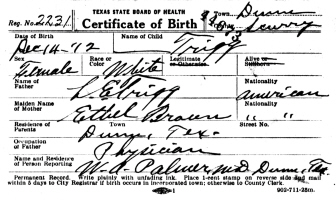 TEXAS STATE BOARD OF HEALTH
Reg. No. 2231 Certificate of Birth Town Dunn
Scurry
Date of Birth Name of Child
Dec 14 - '12 Trigg
Sex Color Legitimate or Otherwise Alive or Stillborn
Female White
Name of Father Nationality
L E Trigg American
Maiden Name of Mother Nationality
Ethel Brown " "
Residence of Parents Street No.
Dunn, Tex.
Occupation of Father
Physician
Name and Residence of Person Reporting
W. A. Palmer, M.D. Dunn, Tex
Permanent Record. Write plainly with unfading ink. Place 1-cent stamp on reverse side and mail
within 5 days to City Registrar if birth occurs in incorporated town; otherwise to County Clerk.
902-711-25m.